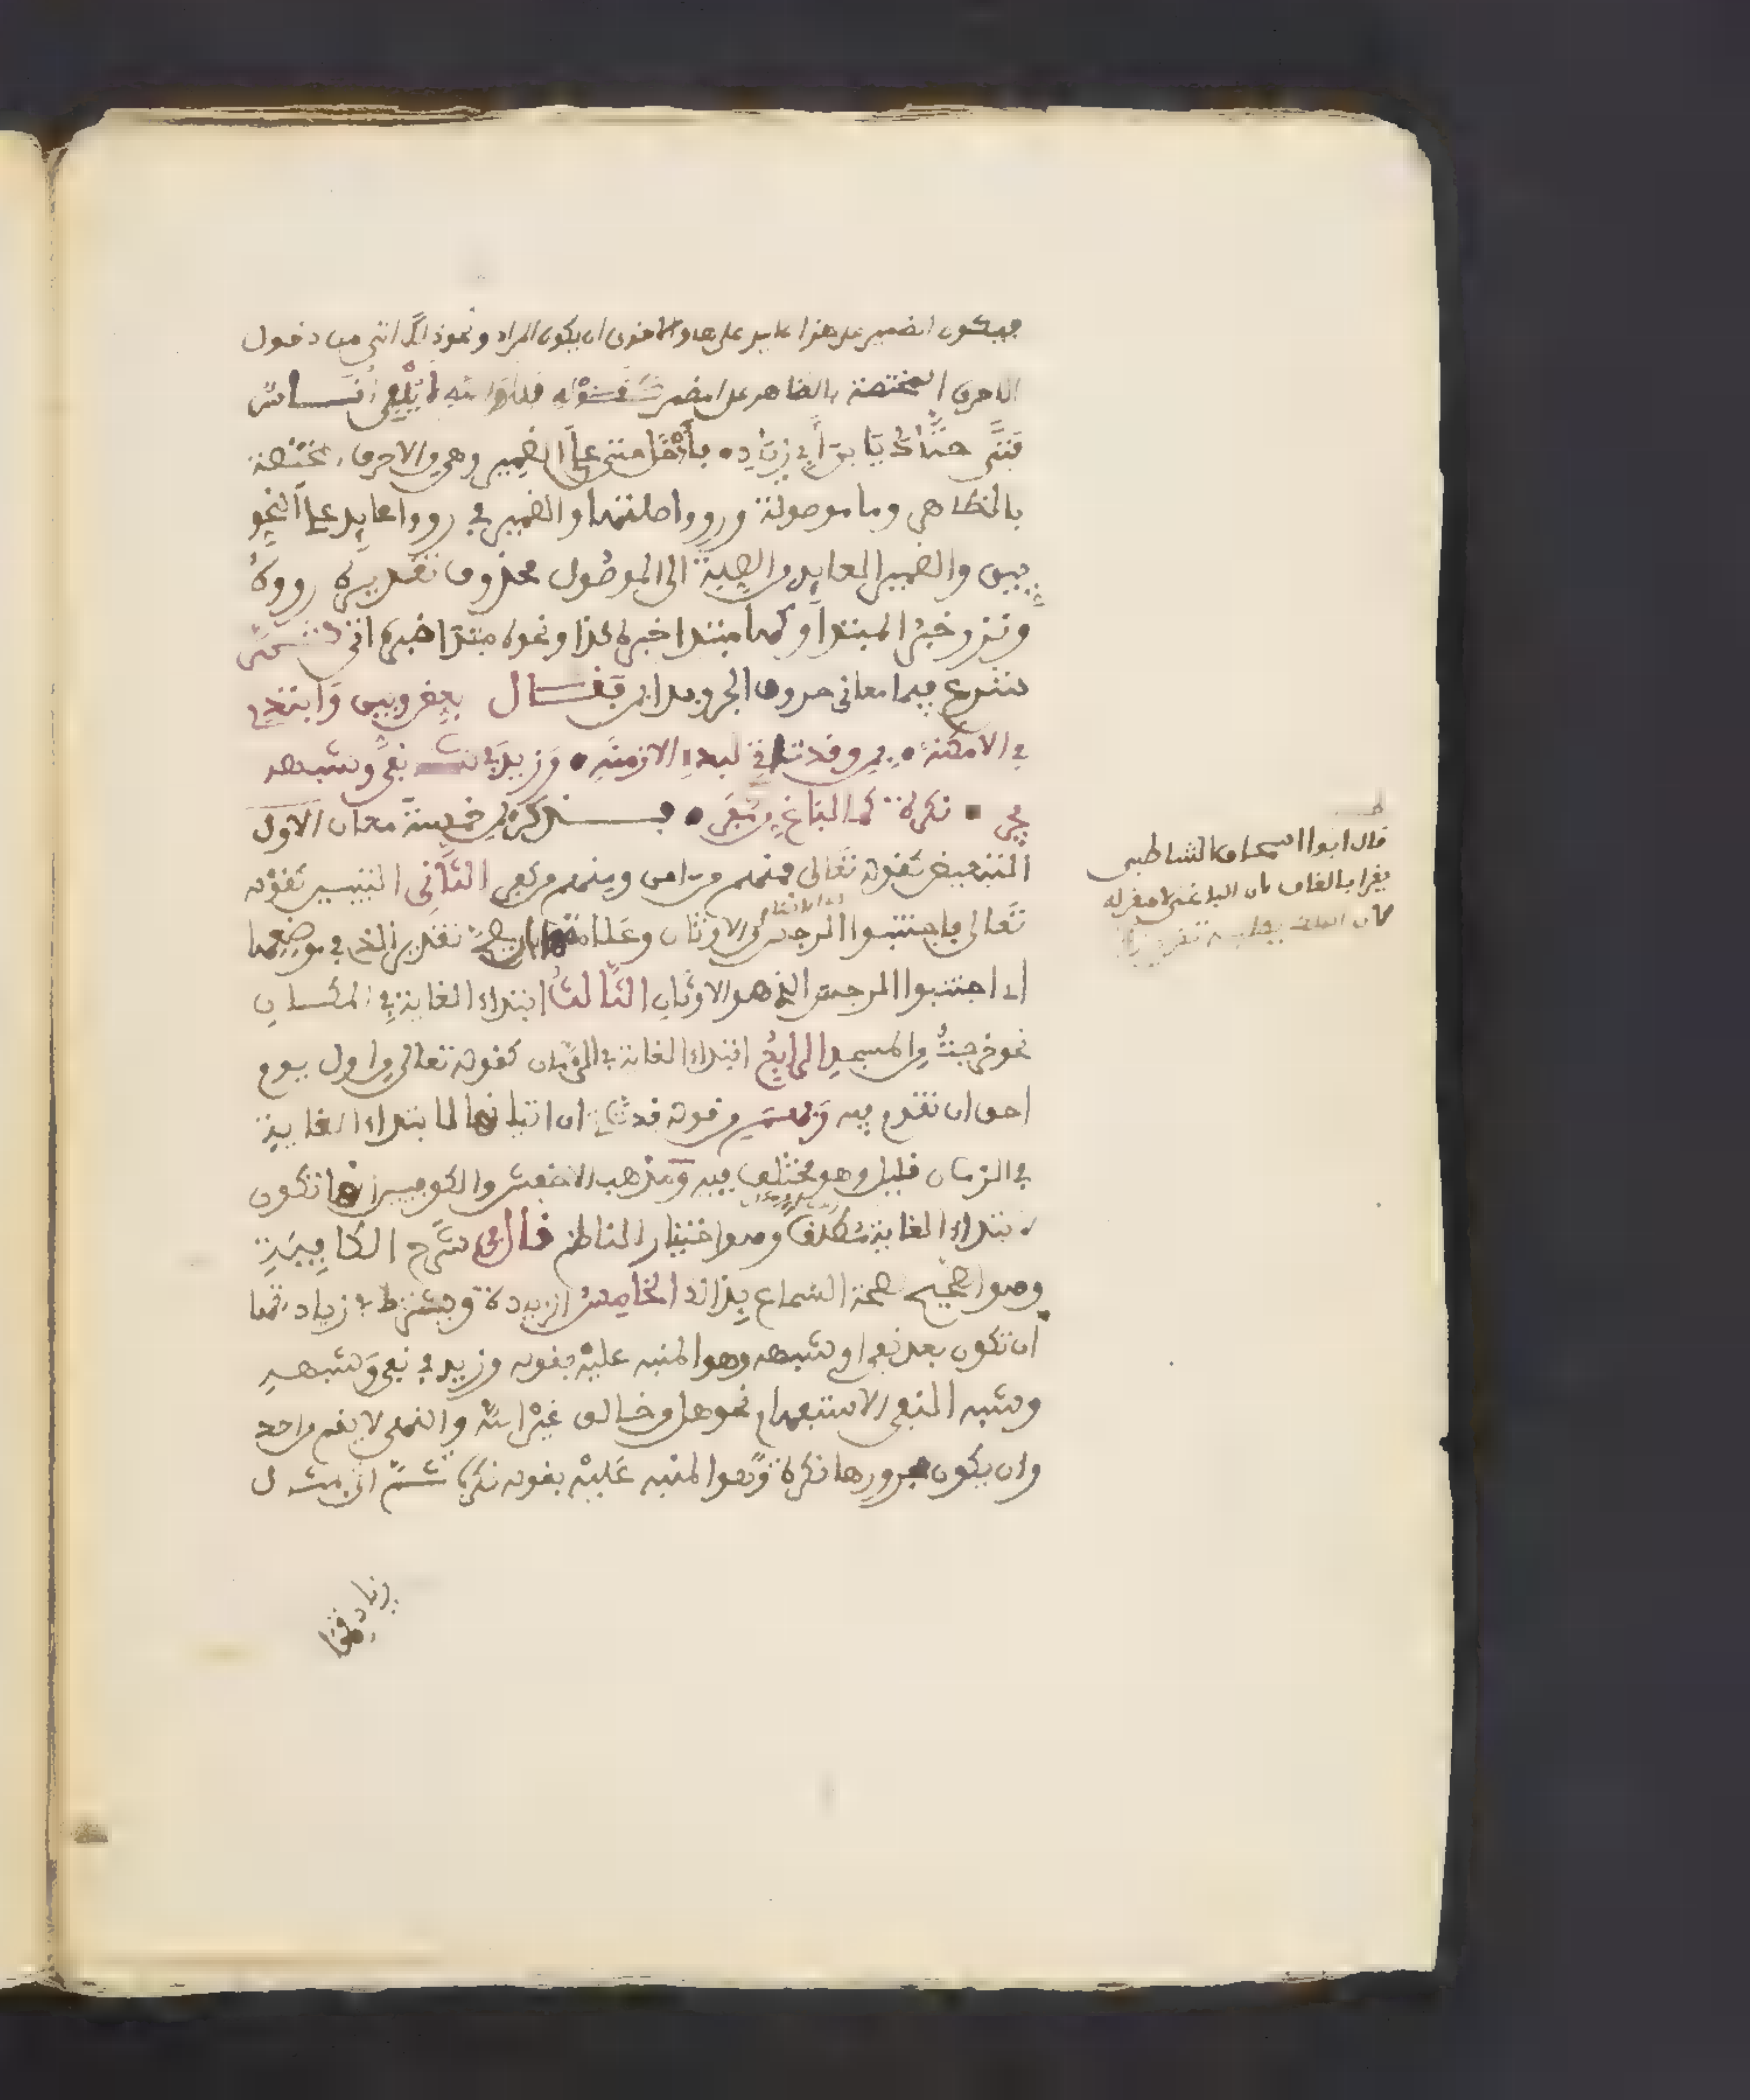 فيكون الضمير على هذا عايد على ها والاخرى ان يكون المراد ونحو ذلك اتى من دخول
الاحرف المختصة بالظاهر على المضمر كقوله فلا والله لا يلفى اناس
فتى حتاك يا بن ابى زياد فادخل حتى على الضمير وهى من الاحرف المختصة
بالظاهر وما موصولة ورووا صلتها والضمير فى رووا عايد على النحو
يين والضمير العايد من الصلة الى الموصول محذوف تقديره رووه
ونزر خبر المبتدا وكها مبتدا خبره كذا ونحوه مبتدا خبره اتى ثم
شرع فيما معانى حروف الجر وبدا بمن فقال بعض وبين وابتدئ
فى الامكنة بمن وقد تاتى لبدء الازمنة وزيد فى نفى وشبهه
فجر نكرة كما لباغ من مفر فذكر لمن خمسة معان الاول
التبعيض كقوله تعالى فمنهم من امن ومنهم من كفر الثانى التبيين كقوله
تعالى فاجتنبوا الرجس من الاوثان وعلامتها ان يصح تقدير الذى فى موضعها
اى اجتنبوا الرجس الذى هو الاوثان الثالث ابتداء الغاية فى المكان
نحو خرجت من المسجد الرابع ابتداء الغاية فى الزمان كقوله تعالى من اول يوم
احق ان تقوم فيه وفهم من قوله قد تاتى ان اتيانها لابتداء الغاية
فى الزمان قليل وهو مختلف فيه ومذهب الاخفش والكوفيين انها تكون
لابتداء الغاية مطلقا وهو اختيار الناظم قال فى شرح الكافية
وهو الصحيح لصحة السماع بذلك الخامس الزيادة ويشترط فى زيادتها
ان تكون بعد نفى او شبهه وهو المنبه عليه بقوله وزيد فى نفى وشبهه
وشبه النفى الاستفهام نحو هل من خالق غير الله والنهى لا يقم من احد
وان يكون مجرورها نكرة وهو المنبه عليه بقوله نكرة ثم اتى بمثال
زيادتها
قال ابوا اسحاق الشاطبى
يقرا بالقاف لان الباغى لا مفر له